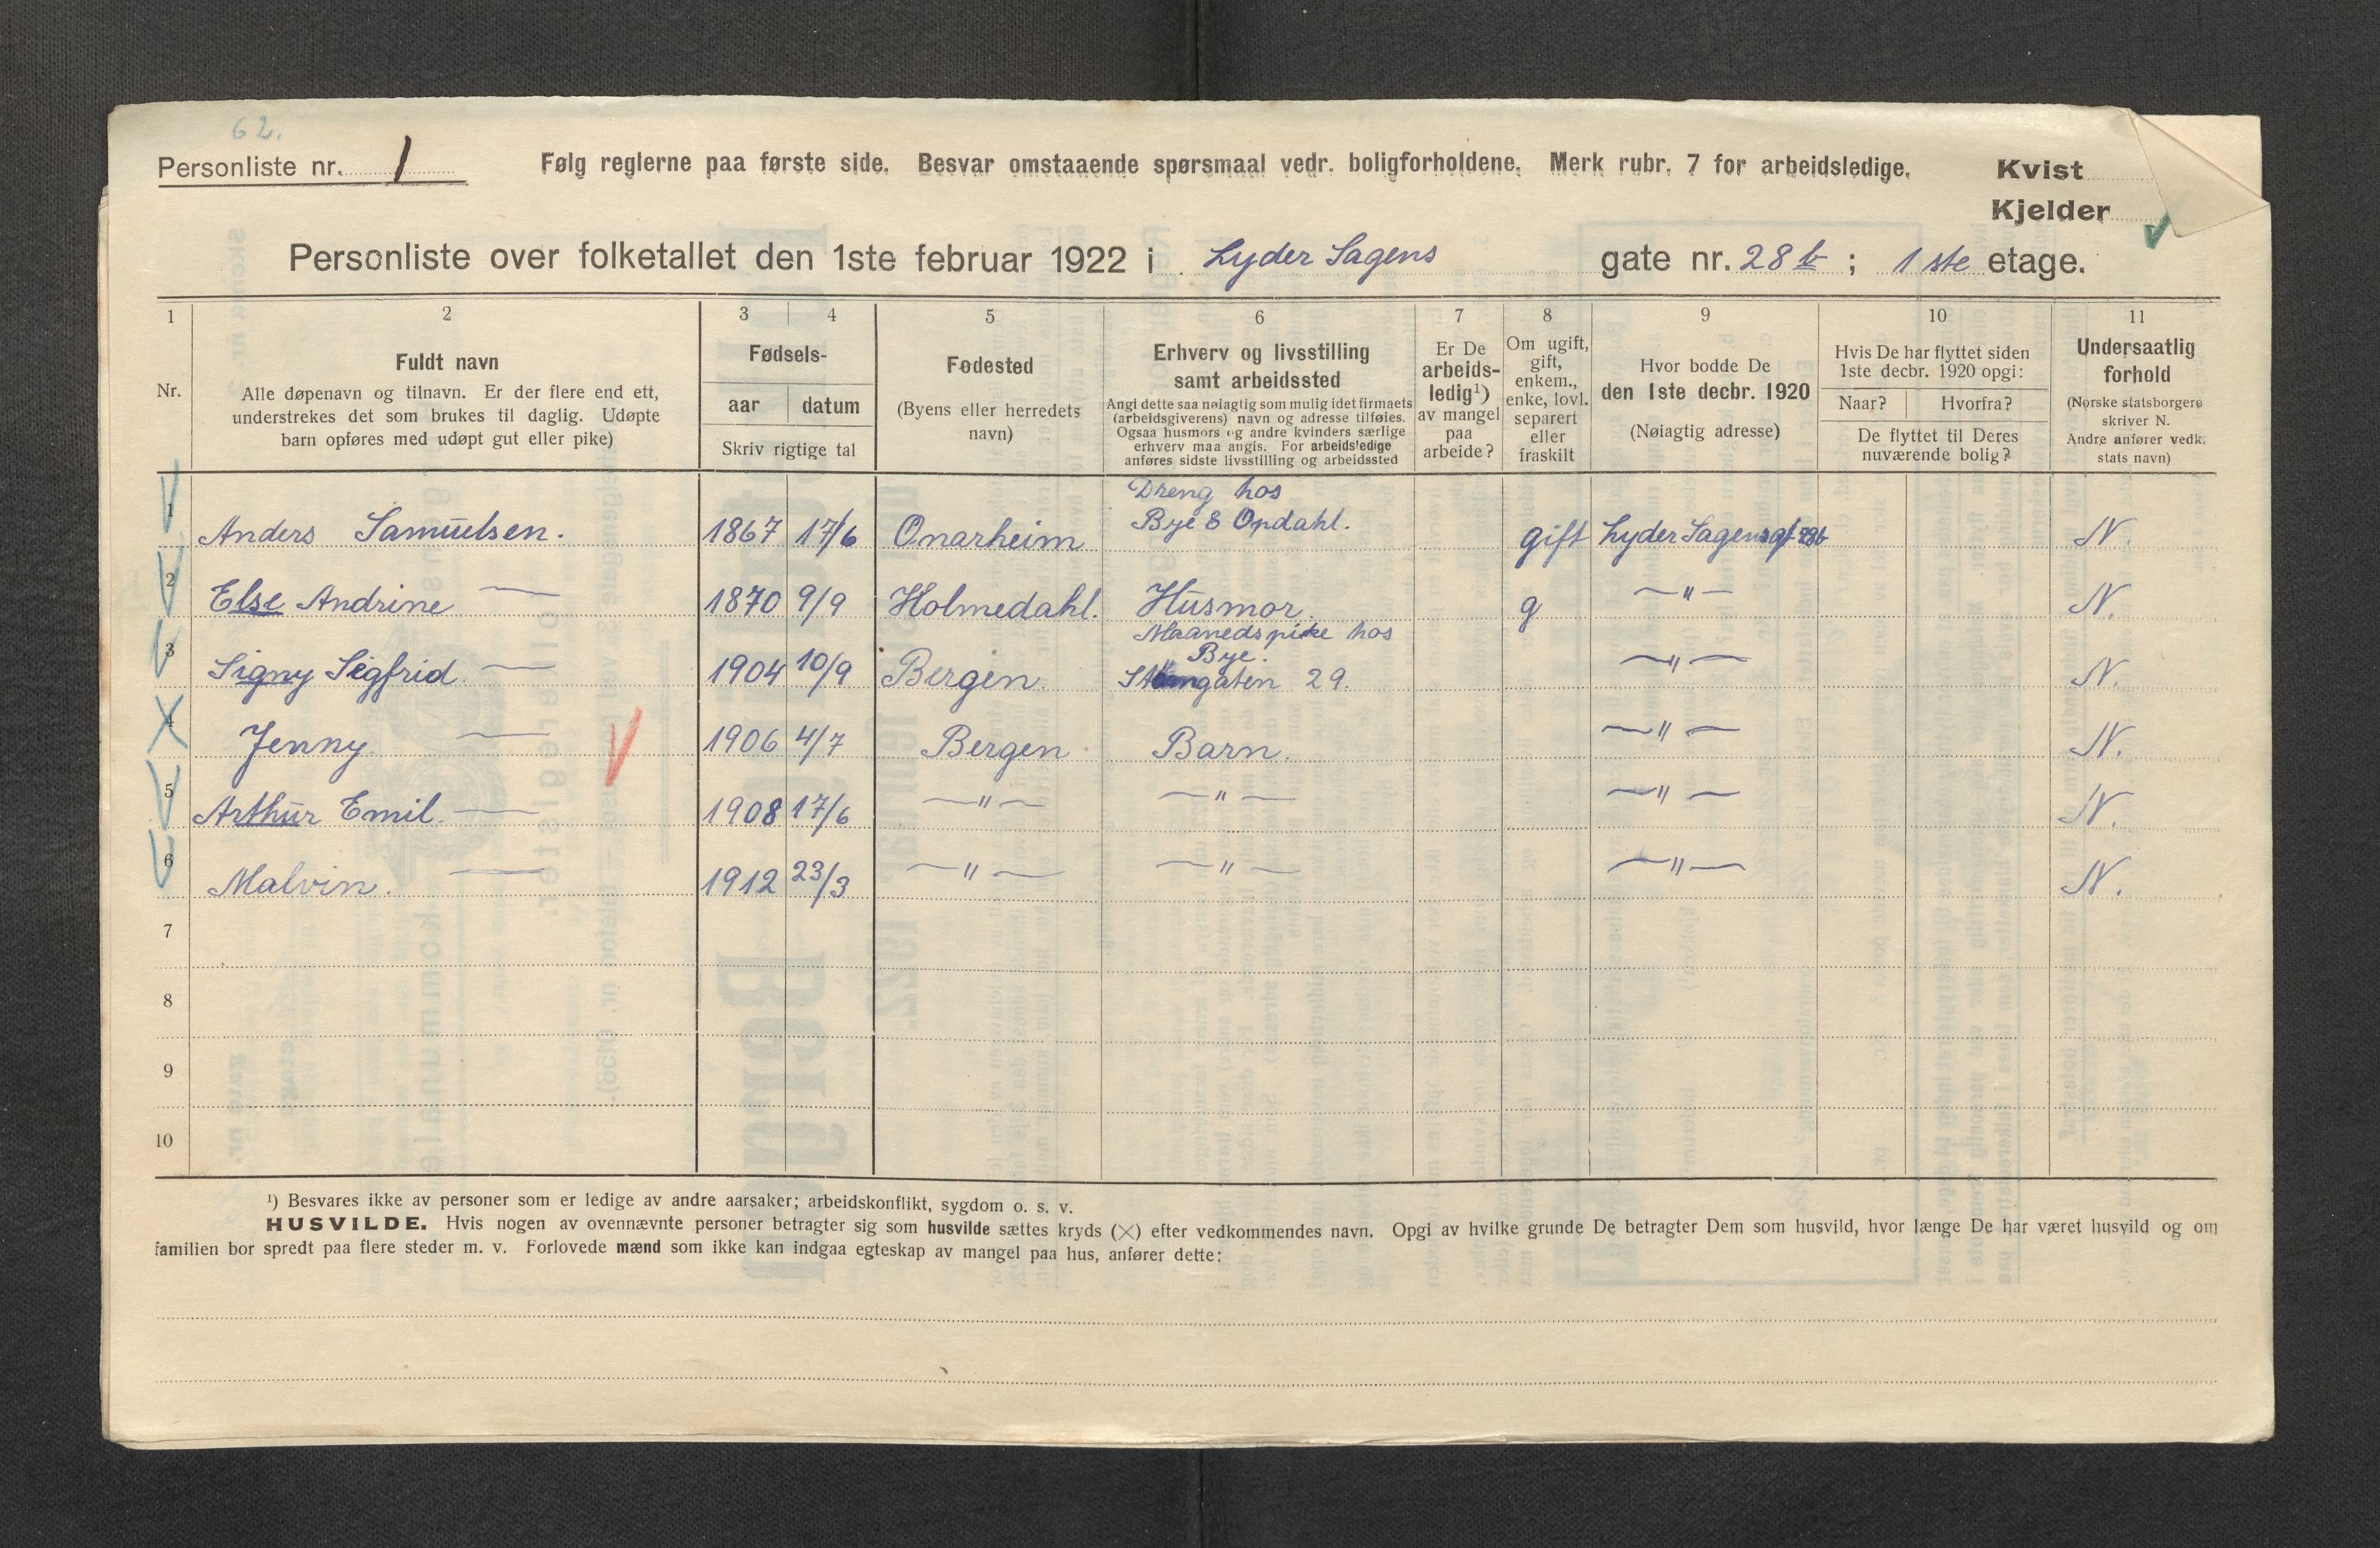 62.
Personliste nr. 1 Følg reglerne paa første side. Besvar omstaaende spørsmaal vedr. boligforholdene. Merk rubr. 7 for arbeidsledige. Kvist
Kjelder
Personliste over folketallet den 1ste februar 1922 i Lyder Sagens gate nr. 28 b ; 1 ste etage.
1 2 3 4 5 6 7 8 9 10 11
Nr.
Fuldt navn
Alle døpenavn og tilnavn. Er der flere end ett,
understrekes det som brukes til daglig. Udøpte
barn opføres med udøpt gut eller pike)
Fødsels-
aar datum
Skriv rigtige tal
Fødested
(Byens eller herredets
navn)
Erhverv og livsstilling
samt arbeidssted
Angi dette saa nøiagtig som mulig idet firmaets
(arbeidsgiverens) navn og adresse tilføies.
Ogsaa husmors og andre kvinders særlige
erhverv maa angis. For arbeidsledige
anføres sidste livsstilling og arbeidssted
Er De
arbeids-
ledig¹)
av mangel
paa
arbeide?
Om ugift,
gift,
enkem.,
enke, lovl.
separert
eller
fraskilt
Hvor bodde De
den 1ste decbr. 1920
(Nøiagtig adresse)
Hvis De har flyttet siden
1ste decbr. 1920 opgi:
Naar? Hvorfra?
De flyttet til Deres
nuværende bolig?
Undersaatlig
forhold
(Norske statsborgere
skriver N.
Andre anfører vedk.
stats navn)
Dreng hos
1 Anders Samuelsen. 1867 17/6 Onarheim Bye & Opdahl. gift Lyder Sagensgt 28b N.
2 Else Andrine — 1870 9/9 Holmedahl. Husmor. g —"— N.
Maanedspike hos
Bye.
3 Signy Sigfrid — 1904 10/9 Bergen. 29. —"— N.
4 Jenny — 1906 4/7 Bergen Barn. —"— N.
5 Arthur Emil. — 1908 17/6 —"— —"— —"— N.
6 Malvin. — 1912 23/3 —"— —"— —"— N.
7
8
9
10
¹) Besvares ikke av personer som er ledige av andre aarsaker; arbeidskonflikt, sygdom o. s. v.
HUSVILDE. Hvis nogen av ovennævnte personer betragter sig som husvilde sættes kryds (×) efter vedkommendes navn. Opgi av hvilke grunde De betragter Dem som husvild, hvor længe De har været husvild og om
familien bor spredt paa flere steder m. v. Forlovede mænd som ikke kan indgaa egteskap av mangel paa hus, anfører dette: